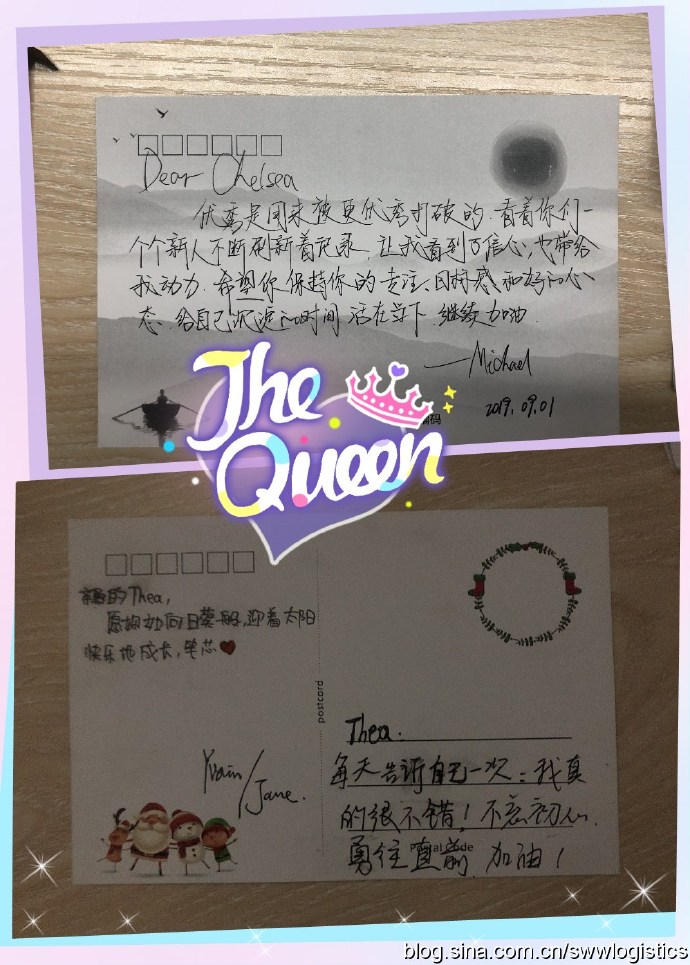 Dear Chelsea
优秀是用来被更优秀打破的.看着你们一
个个新人不断刷新着记录,让我看到了信心,也带给
我动力.希望你保持你的专注、目标感和好的心
态.给自己沉淀的时间.活在当下.继续加油.
——Michael
2019.09.01
The
Queen
编码
亲爱的Thea,
愿你如向日葵一般,迎着太阳
快乐地成长,笔芯
/Jane.
postcard
Thea.
每天告诉自己一次:我真
的很不错!不忘初心.
勇往直前.加油!
blog.sina.com.cn/swwlogistics